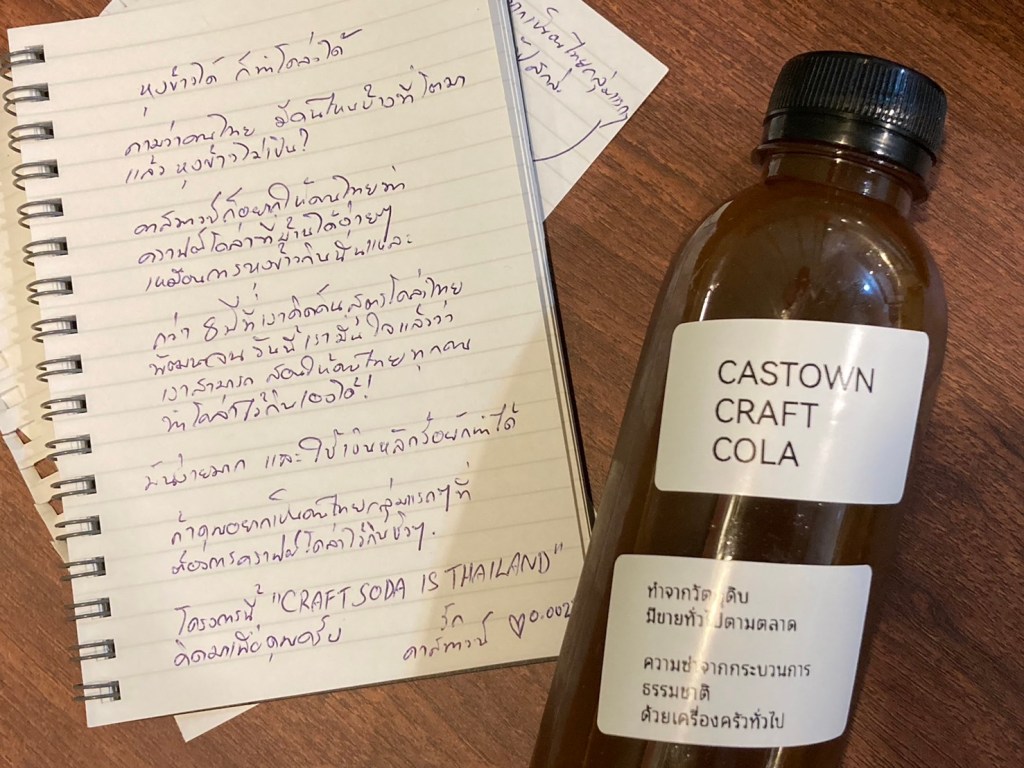 หุงข้าวได้ ก็ทำโคล่าได้
ถามว่าคนไทย มีคนไหนบ้างที่โตมา
แล้วหุงข้าวไม่เป็น?
คาสทาวน์ก็อยากให้คนไทยทำ
คราฟต์โคล่าที่บ้านได้ง่ายๆ
เหมือนการหุงข้าวกินนั่นแหละ
กว่า 8 ปีที่เราคิดค้นสูตรโคล่าไทย
พัฒนาจน วันนี้เรามั่นใจแล้วว่า
เราสามารถ สอนให้คนไทยทุกคน
ทำโคล่าไว้กินเองได้!
มันง่ายมาก และใช้เงินหลักร้อยก็ทำได้
ถ้าคุณอยากเป็นคนไทยกลุ่มแรกๆที่
ต้องการคราฟต์โคล่าไว้กินชิวๆ.
โครงการนี้ "CRAFT SODA IS THAILAND"
คิดมาเพื่อคุณครับ
รัก
คาสทาวน์ ♡0.002
CASTOWN
CRAFT
COLA
ทำจากวัตถุดิบ
มีขายทั่วไปตามตลาด
ความซ่าจากกระบวนการ
ธรรมชาติ
ด้วยเครื่องครัวทั่วไป